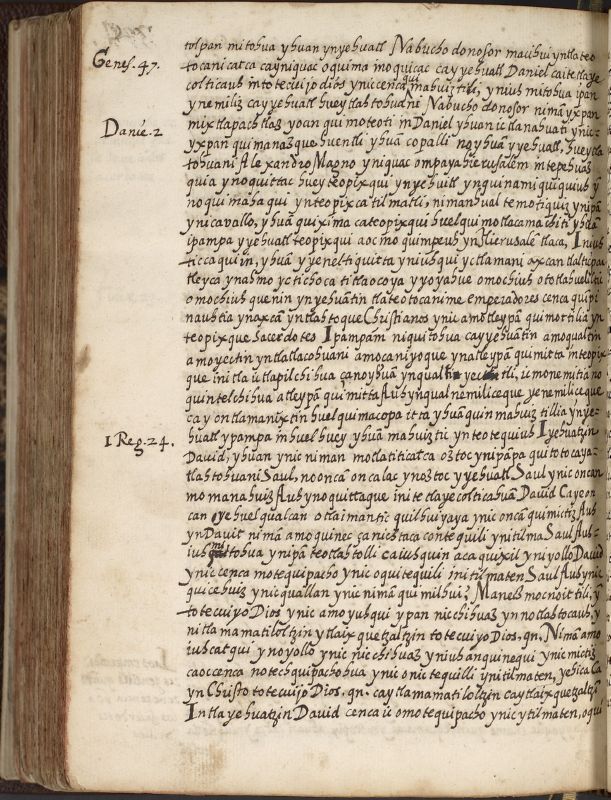 Genes. 47.
Danie. 2
1 Reg. 24.
tolpan mitohua yhuan ynyehuatl Nabucho donosor macihui yntlateo
tocanicatca cayniquac oquima moquicac cayyehuatl Daniel caitetlaye
colticauh intotecuiyo dios yniccenca qui mahuiztili, yniuh mitohua ipan
ynemiliz cayyehuatl hueytlahtohuani Nabucho donosor nimã yxpan
mixtlapachtlaz yoan qui moteoti in Daniel yhuan ic tlanahuati ynic
yxpan quimanazque huentli yhuã copalli no yhuã yyehuatl, hueytla
tohuani Alexandro Magno yniquac ompayahierusalem intepehuaz
quia ynoquittac huey teopixqui ynyehuatl ynquinamiquiquiuh y
noqui mahaqui ynteopixca tilmatli, nimanhual temotiquiz ynipã
ynicavallo, yhuã quixima cateopixqui huelqui motlacamachiti yhuã
ipampa yyehuatl teopixqui aocmo quimpeuh yn Hierusalẽ tlaca, Iniuh
ticcaqui in, yhuã yyeneltiquitta yniuhqui yctlamani axcan tlalticpac
tleyca ynahmo yctichoca titlaocoya yyoyahue omochiuh ototlahueliltic
omochiuh quenin ynyehuãtin tlateotocanime emperadores cenca quipi
nauhtia ynaxcã yntlahtoque Christianos ynic amo tleypã quimottilia yn
teopixque Sacerdotes Ipampa in niquitohua cayyehuãtin amo qualtin
amo yectin yntlatlacohuani amocaniyoque ynatleypã quimitta inteopix
que initla itlapilchihua çanoyhuã ynqualtin yectli, ic mone mitia no
quintelchihua atleypã quimitta Auh ynqualnemiliceque yenemiliceque
cay ontlamanixtin huelquimacopa itta yhuã quin mahuiztillia ynye-
huatl ypampa inhuel huey yhuã mahuiztic ynteotequiuh Iyehuatzin
David, yhuan ynic niman motlatiticatca oztoc ynipãpa quitotocaya
tlahtohuani Saul, no oncã oncalac ynoztoc yyehuatl Saul ynic oncan
mo manahuiz Auh ynoquittaque initetlayecolticahuã David Caye on
can yehuelqualcan otlaimantic quilhuiyaya ynic oncã quimictiz Auh
yn Davit nimã amo quinec çaniceetaca contequili ynitilma Saul Auh
iuh mitohua ynipã teotlahtolli caiuhquin aca quixil yniyollo David
ynic cenca motequipacho ynic oquitequili initilmaten Saul Auh ynic
quicehuiz ynic quallan ynic nimã quimilhui? Maneh mochoitili, y
totecuiyo Dios ynic amo yuhqui ypan nicchihuaz ynnotlahtocauh, y
nitlamamatiloltzin ytlaixquetzaltzin totecuiyo Dios. qn. Nimã amo
iuhcatqui ynoyollo ynic nicchihuaz yniuh anquinequi ynic mictiz
caoccenca notechquipachohua ynic onictequilli ynitilmaten, yehica Ca
yn Christo totecuiyo Dios. qn. caytlamamatiloltzin caytlaixquetzaltzin
Intla yehuatzin David cenca ic omotequipacho ynic ytilmaten, oqui